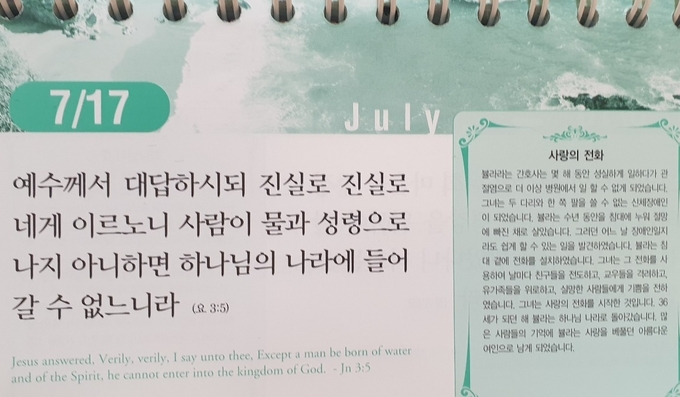 7/17
July
예수께서 대답하시되 진실로 진실로
네게 이르노니 사람이 물과 성령으로
나지 아니하면 하나님의 나라에 들어
갈 수 없느니라 (요 3:5)
Jesus answered, Verily, verily, I say unto thee, Except a man be born of water
and of the Spirit, he cannot enter into the kingdom of God. - Jn 3:5
사랑의 전화
뷸라라는 간호사는 몇 해 동안 성실하게 일하다가 관
절염으로 더 이상 병원에서 일 할 수 없게 되었습니다.
그녀는 두 다리와 한 쪽 팔을 쓸 수 없는 신체장애인
이 되었습니다. 뷸라는 수년 동안을 침대에 누워 절망
에 빠진 채로 살았습니다. 그러던 어느 날 장애인일지
라도 쉽게 할 수 있는 일을 발견하였습니다. 뷸라는 침
대 곁에 전화를 설치하였습니다. 그녀는 그 전화를 사
용하여 날마다 친구들을 전도하고, 교우들을 격려하고,
유가족들을 위로하고, 실망한 사람들에게 기쁨을 전하
였습니다. 그녀는 사랑의 전화를 시작한 것입니다. 36
세가 되던 해 뷸라는 하나님 나라로 돌아갔습니다. 많
은 사람들의 기억에 뷸라는 사랑을 베풀던 아름다운
여인으로 남게 되었습니다.